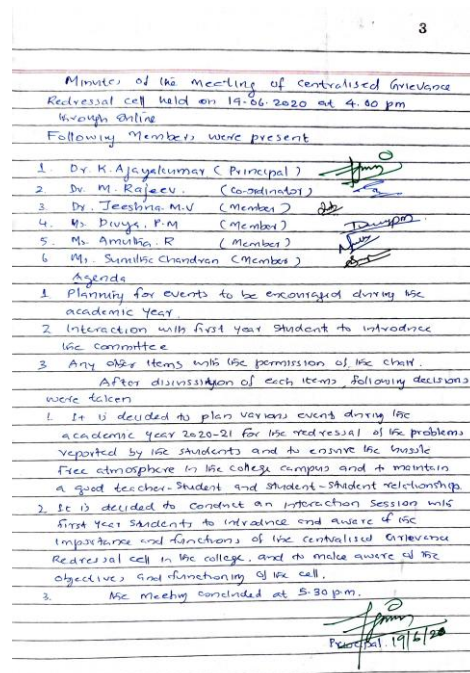 3
Minutes of the meeting of centralised Grievance
Redressal cell held on 19-06-2020 at 4.00 pm
through Online
Following Members were present
1. Dr. K. Ajayakumar (Principal)
2. Dr. M. Rajeev. (Co-ordinator)
3. Dr. Jeeshna. M.V (Member)
4. Ms. Divya. P.M (Member)
5. Ms. Amutha. R (Member)
6 Ms. Sumithe Chandran (Member)
Agenda
1 Planning for events to be encouraged during the
academic year.
2 Interaction with first year student to introduce
the committee
3 Any other items with the permission of the chair.
After disinssidyon of each items, following decisions
were taken
1. It is decided to plan various event during the
academic year 2020-21 for the redressal of the problems
reported by the students and to ensure the hussle
free atmosphere in the college campus and to maintain
a good teacher-student and student-student relationship.
2. It is decided to conduct an interaction session with
first year students to introduce and aware of the
importance and functions of the centralised Grievance
Redressal cell in the college, and to make aware of the
objectives and functioning of the cell.
3. The meeting concluded at 5-30 p.m.
Principal. 19/6/20